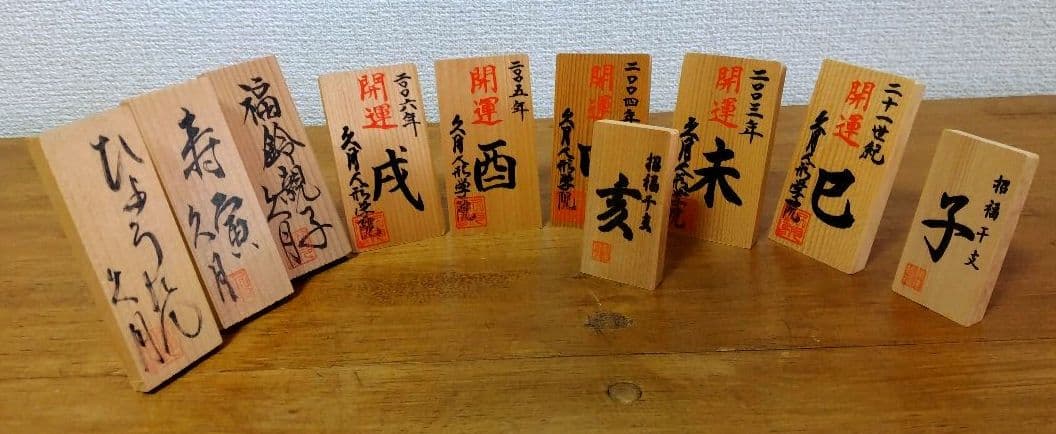 ひょうたん
久月
寿寅
久月
福鈴親子
久月
二〇〇六年
開運
戌
久月人形学院
二〇〇五年
開運
酉
久月人形学院
二〇〇四年
開運
久月人形学院
招福干支
亥
二〇〇三年
開運
未
久月人形学院
二十一世紀
開運
巳
久月人形学院
招福干支
子